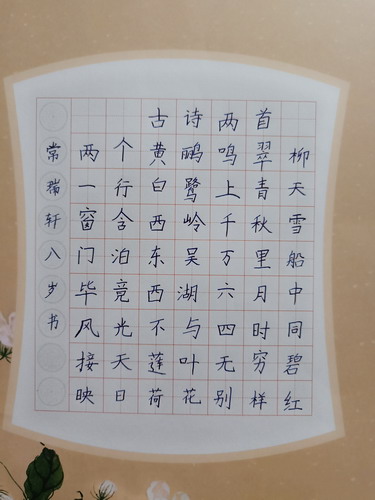 古诗两首
两个黄鹂鸣翠柳
一行白鹭上青天
窗含西岭千秋雪
门泊东吴万里船
毕竟西湖六月中
风光不与四时同
接天莲叶无穷碧
映日荷花别样红
常瑞轩八岁书